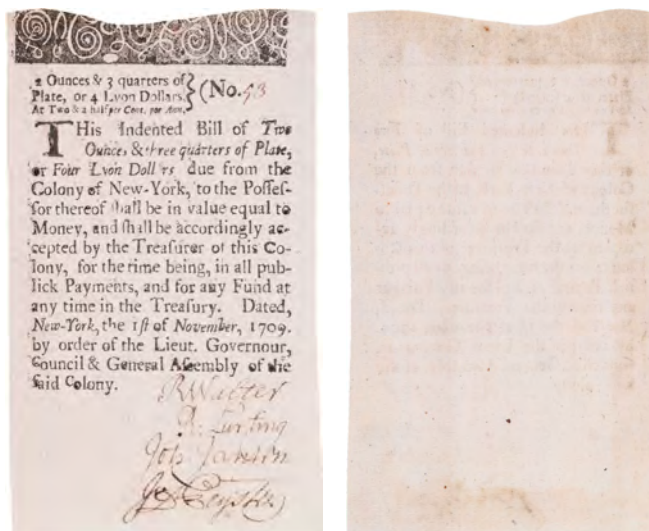 2 Ounces & 3 quarters of
Plate, or 4 Lyon Dollars,
At Two & a half per Cent. per Ann.
(No. 53
THis Indented Bill of Two
Ounces & three quarters of Plate,
or Four Lyon Doll rs due from the
Colony of New-York, to the Posses-
sor thereof shall be in value equal to
Money, and shall be accordingly ac-
cepted by the Treasurer of this Co-
lony, for the time being, in all pub-
lick Payments, and for any Fund at
any time in the Treasury. Dated,
New-York, the 1st of November, 1709.
by order of the Lieut. Governour,
Council & General Assembly of the
said Colony.
R Walter
R. Lurting
Joh Jansen